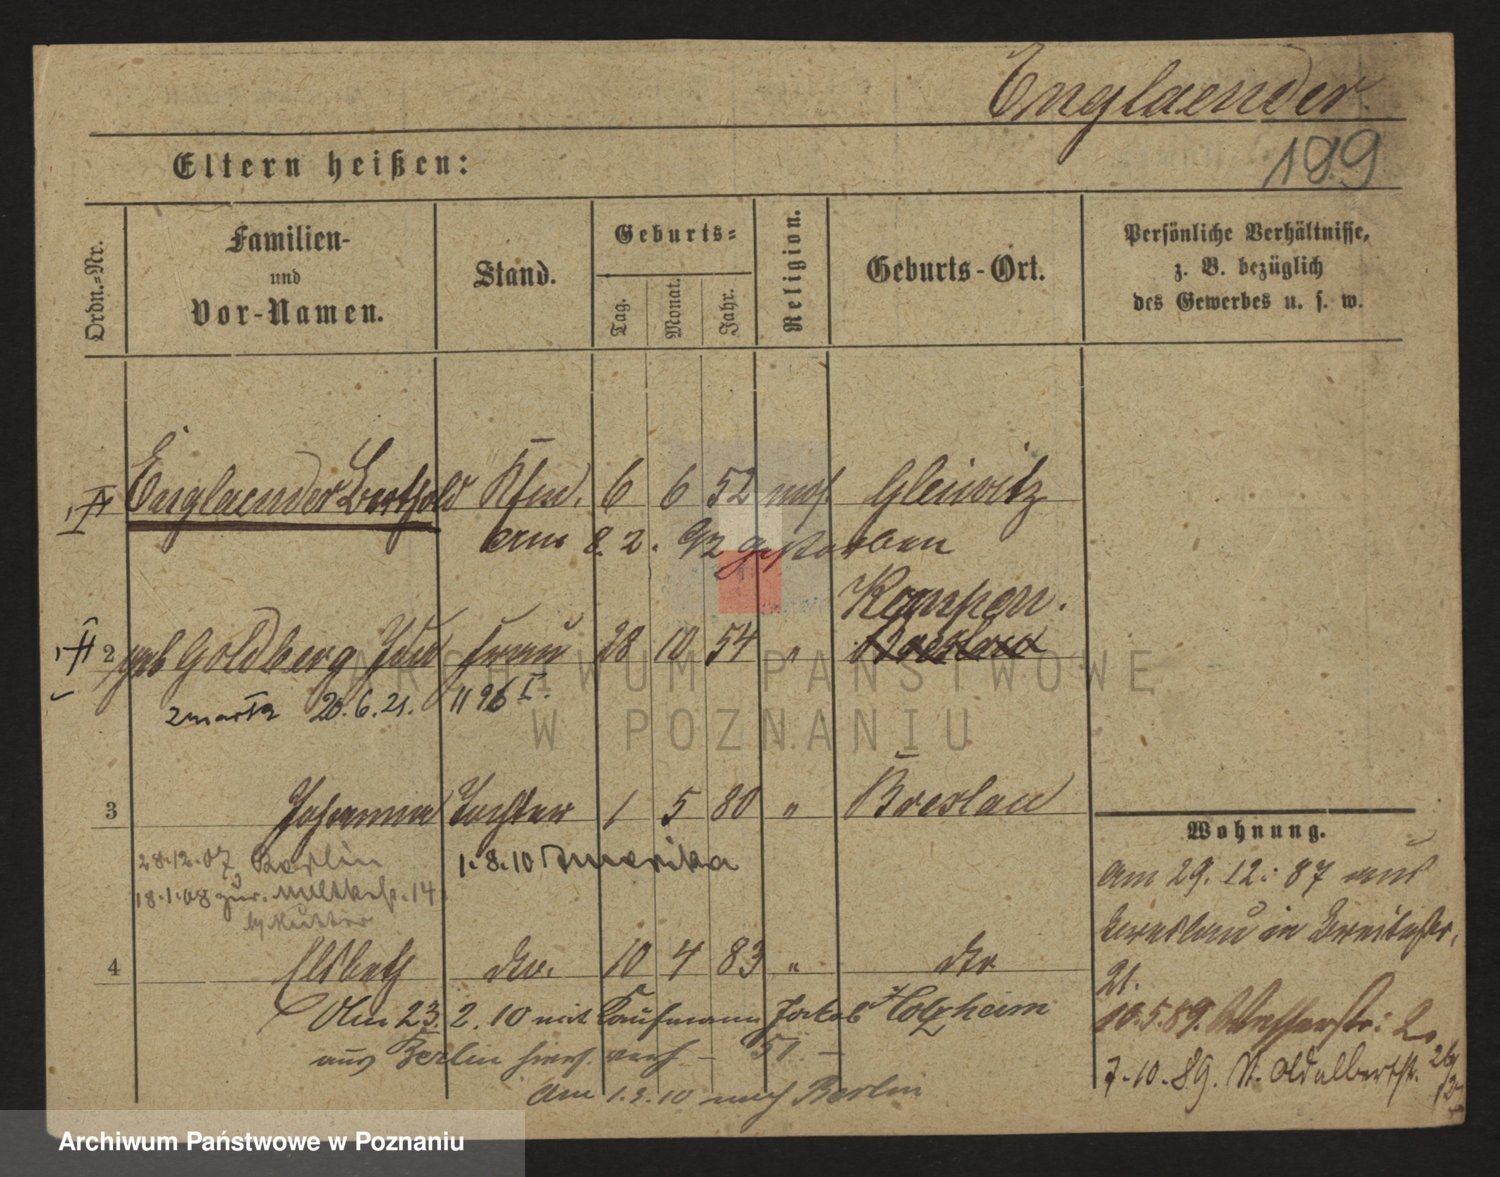 Englaender
199
Eltern heißen:
Ordn.-Nr.
Familien-
und
Vor-Namen.
Stand.
Geburts-
Tag.
Monat.
Jahr.
Religion.
Geburts-Ort.
Persönliche Verhältnisse,
z. B. bezüglich
des Gewerbes u. s. w.
Englaender Berthold Kfm. 6 6 52 mos. Gleiwitz
am 8. 2. 92 gestorben
Kempen.
2 geb Goldberg Ida Frau 28 10 54 " Breslau
zmarła 20.6.21.
ARCHIWUM PAŃSTWOWE
W POZNANIU
3 Johanna Tochter 1 5 80 " Breslau
28.12.07 Berlin
1.8.10 Amerika
18.1.08 zur. 14
b/ Mutter
4 Elsbeth do. 10 4 83 " do
Am 23 2. 10 mit Kaufmann Jakob Holzheim
aus Berlin hies. verh.
Am 1.3.10 nach Berlin
Wohnung.
am 29. 12. 87 aus
Breslau in Breitestr.
21.
10.5.89. Wasserstr. 2
7.10.89. St. Adalbertstr. 26/27
Archiwum Państwowe w Poznaniu